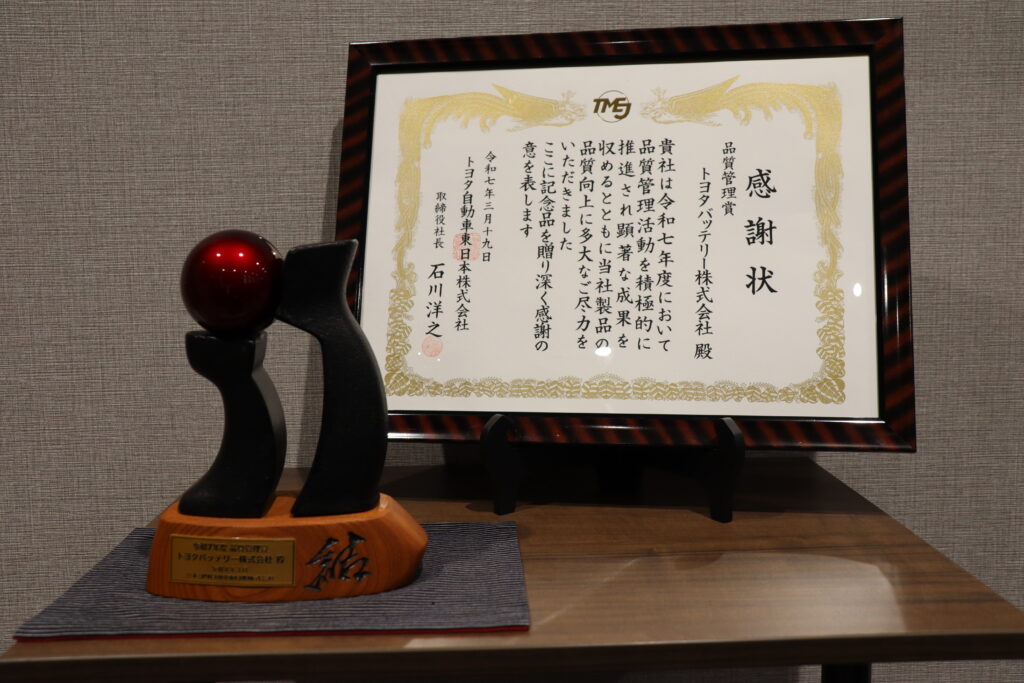 TMEJ
感謝状
品質管理賞
トヨタバッテリー株式会社 殿
貴社は令和七年度において
品質管理活動を積極的に
推進され顕著な成果を
収めるとともに当社製品の
品質向上に多大なご尽力を
いただきました
ここに記念品を贈り深く感謝の
意を表します
令和七年三月十九日
トヨタ自動車東日本株式会社
取締役社長 石川洋之
トヨタバッテリー株式会社 殿
結